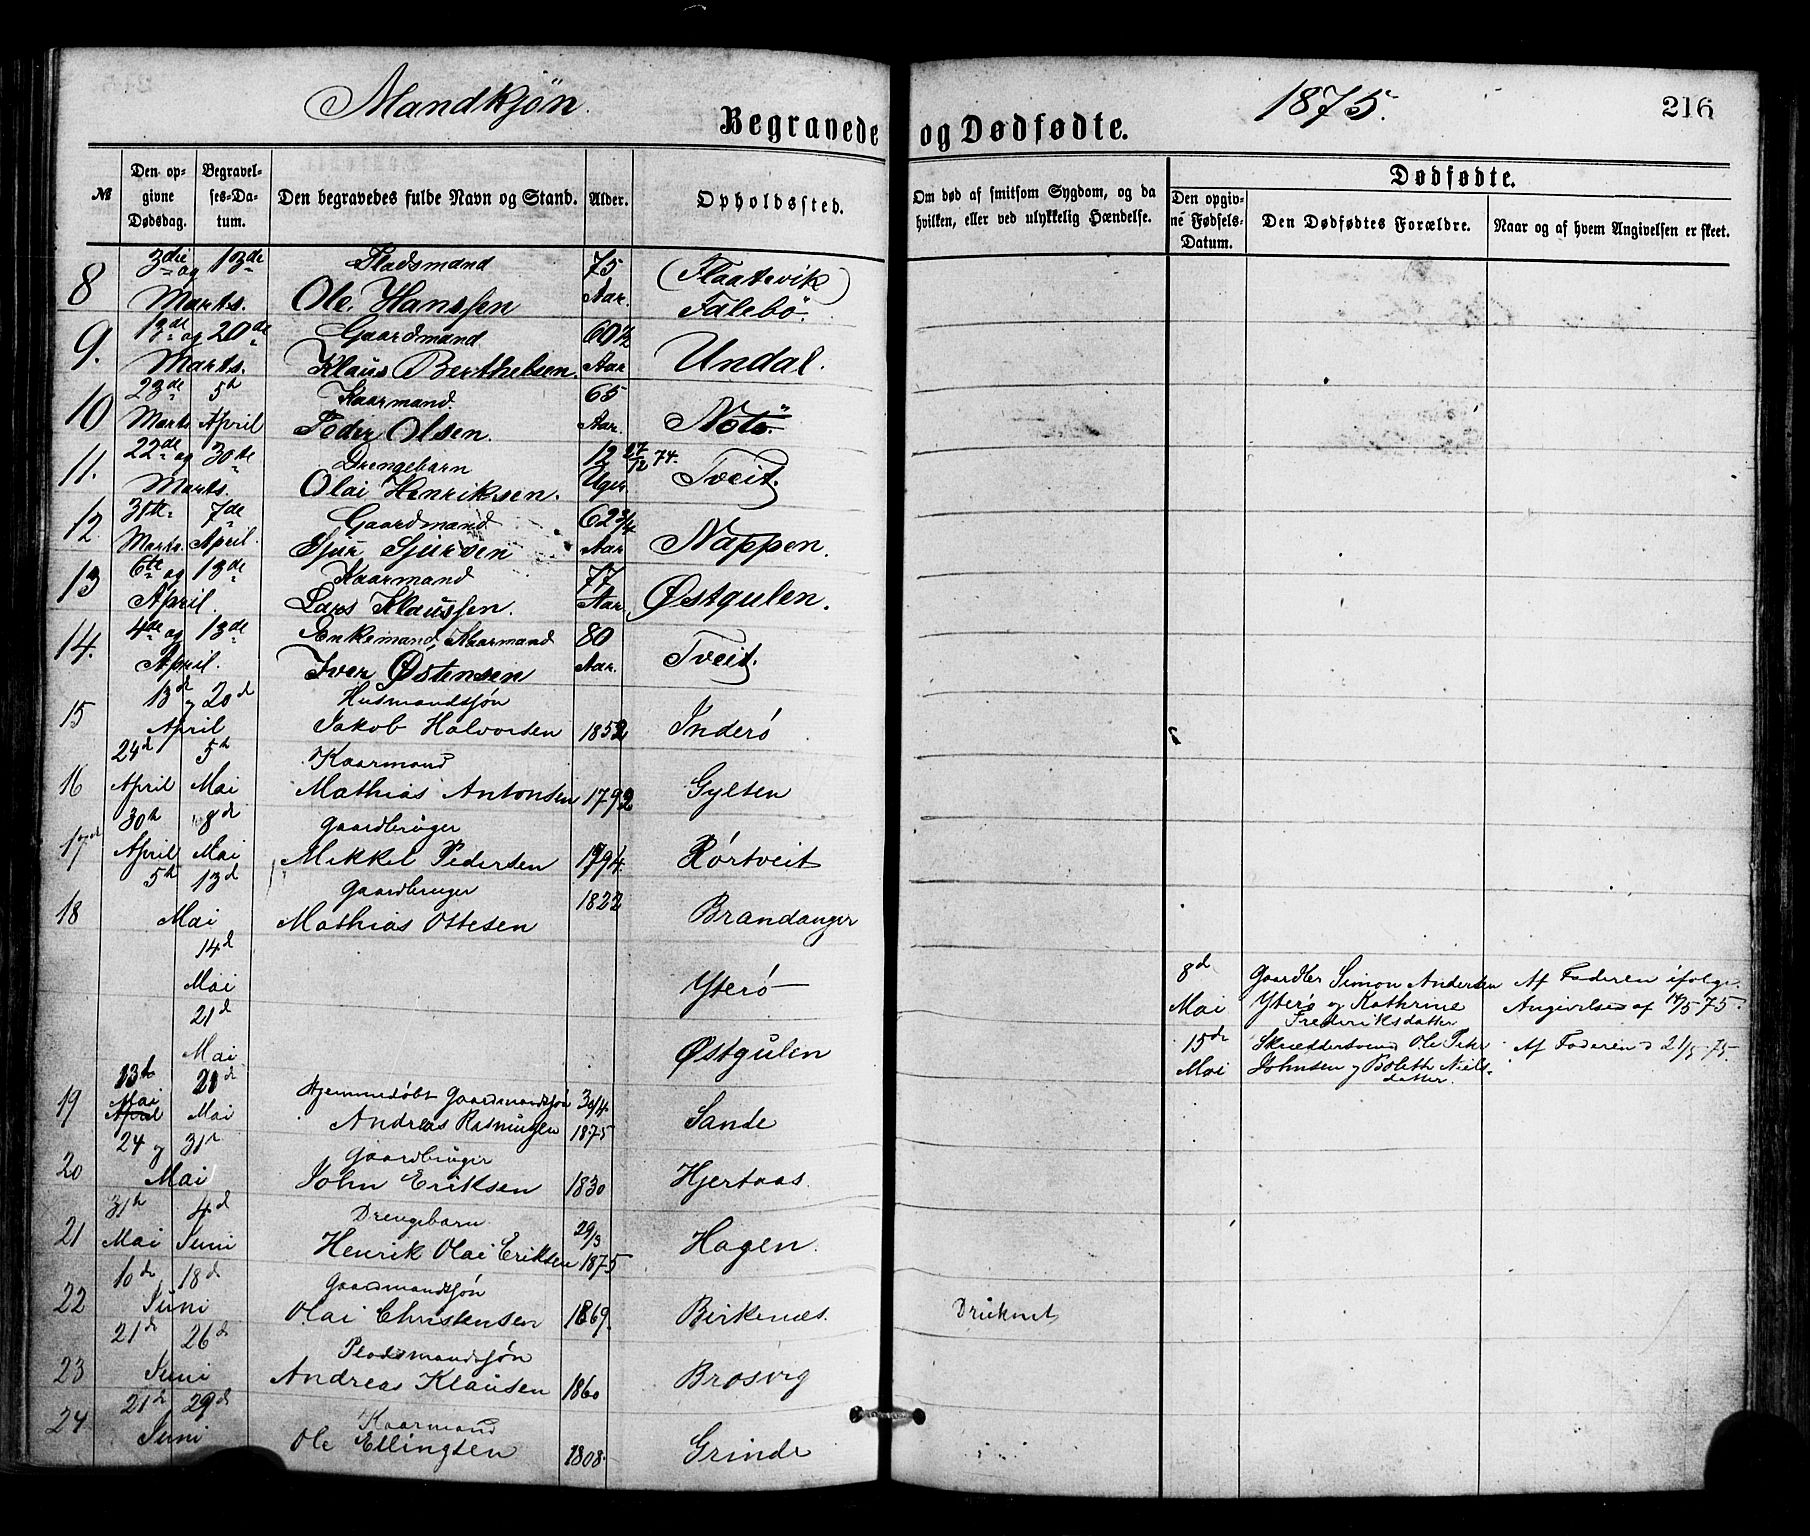 Mandkjøn.
1875.
216
Begravede og Dødfødte.
№
Den opgivne Dødsdag.
Begravelses-Datum.
Den begravedes fulde Navn og Stand.
Alder.
Opholdssted.
Om død af smitsom Sygdom, og da hvilken, eller ved ulykkelig Hændelse.
Dødfødte.
Den opgivne Fødsels-Datum.
Den Dødfødtes Forældre.
Naar og af hvem Angivelsen er skeet.
3die og 13de Pladsmand 75 (Flaatevik)
8 Marts. Ole Hanssen Aar. Falebø.
13de og 20de Gaardmand 60½
9. Marts. Klaus Berthelsen. Aar Undal.
23de 5th Kaarmand. 65
10 Marts April Peder Olsen. Aar. Notø.
22de og 30te Drengebarn 12 27/12 74.
11. Marts. Olai Henriksen. Uger Tveit.
31te 7de Gaardmand 62¾
12. Marts. April. Sjur Sjursen Aar Nappen.
6te og 13de Kaarmand 77
13 April. Lars Klaussen. Aar. Østgulen.
4de og 13de Enkemand, Kaarmand 80
14. April. Iver Østensen Aar. Tveit.
13d og 20d Husmandssøn
15 April Jakob Halvorsen 1852 Inderø
24d 5th Kaarmand
16 April Mai Mathias Antonsen 1792 Gylten
30th 8d Gaardbruger
17 April Mai Mikkel Pedersen 1794. Rørtveit
5th 13d Gaardbruger
18 Mai Mathias Ottesen 1822 Brandanger
14d Mai Yterø 8d Mai
Gaardbr Simon Andersen
Yterø og Kathrine
Frederiksdatter
Af Faderen ifølge
Angivelse af 14/5 75.
21d Mai Østgulen 15de Mai
Ole Petr
Johnsen og Boleth Niels-
datter.
Af Faderen 21/5 75.
13th 21d Hjemmedøbt Gaardmandssøn 30/4
19 Mai April Mai Andreas Rasmussen 1875 Sande
24 og 31te Gaardbruger
20 Mai John Eriksen 1830 Hjertaas
31th 4d Drengebarn 29/3
21 Mai Juni Henrik Olai Eriksen 1875 Hagen.
10de 18d Gaardmandssøn
22 Juni Olai Christensen 1869. Birkenæs. Druknet
21d 26d Pladsmandssøn
23 Juni Andreas Klausen 1860 Brosvig
21de 29d Kaarmand
24 Juni Ole Ellingsen 1808 Grinde